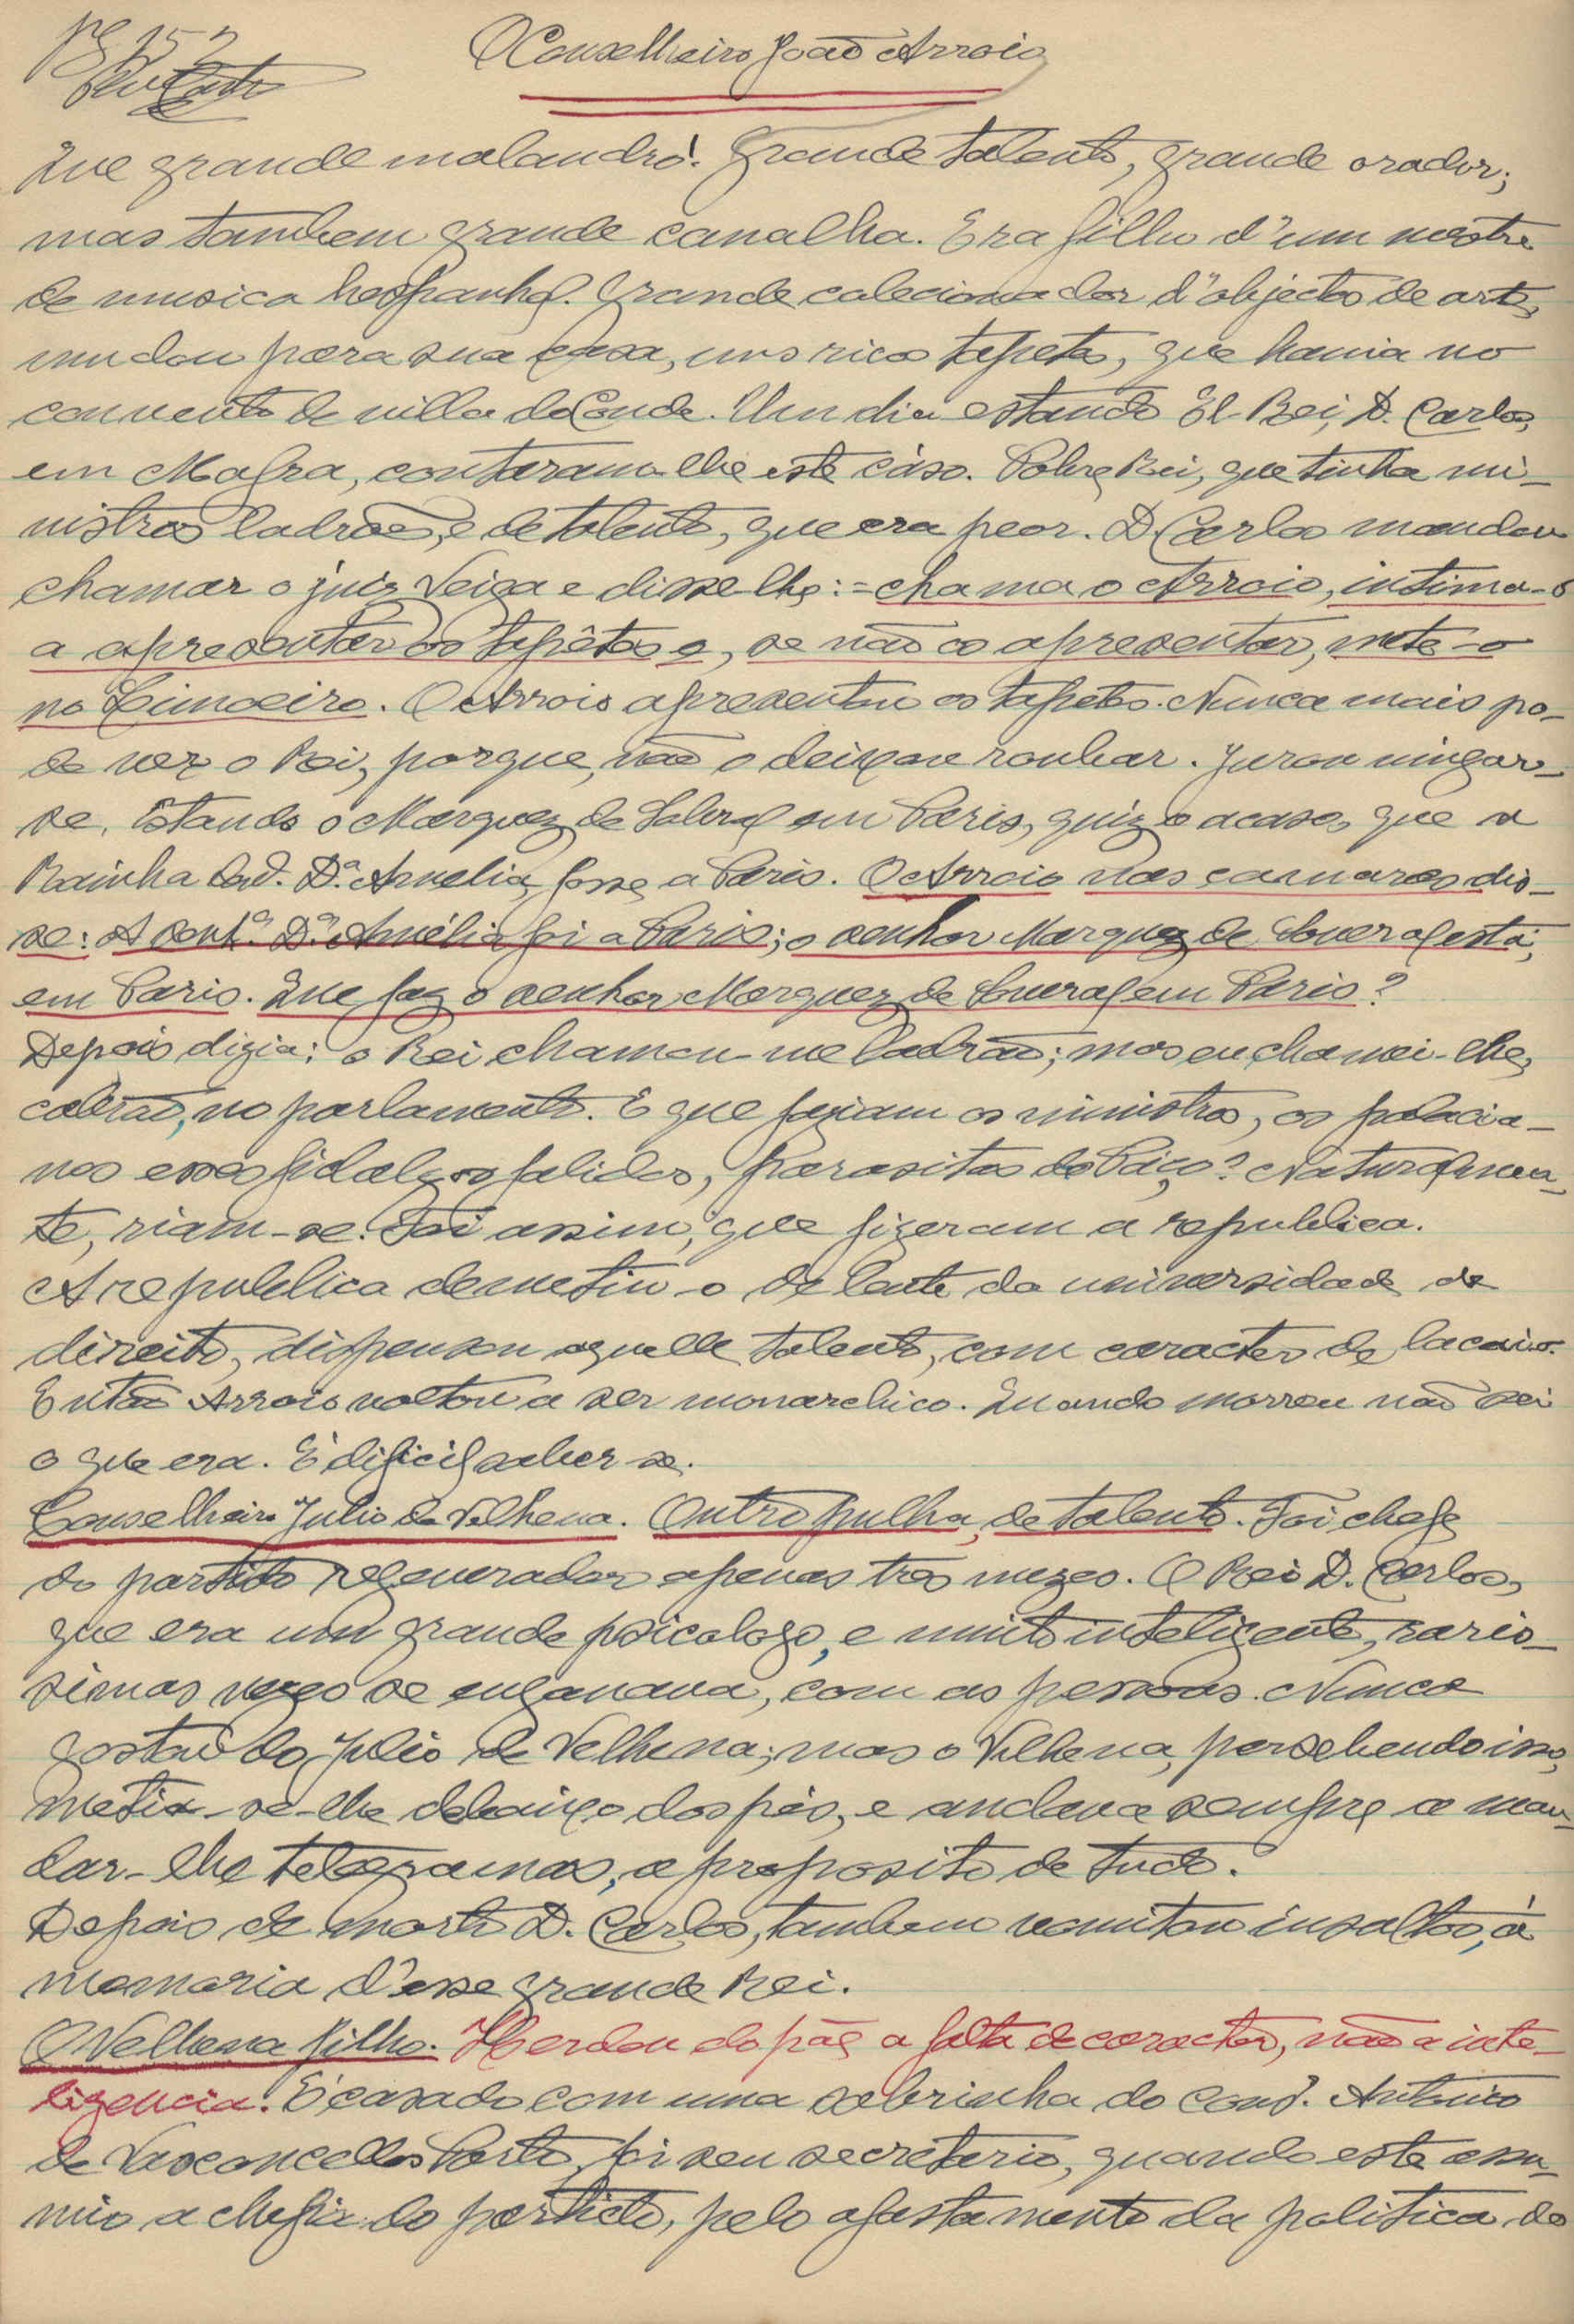 O Conselheiro João Arroio
Que grande malandro! Grande talento, grande orador;
mas tambem grande canalha. Era filho d'um mestre
de musica hespanhol. Grande colecionador d'objectos de arte,
mudou para sua casa, uns ricos tapetes, que havia no
convento de villa do Conde. Um dia estando El-Rei, D. Carlos,
em Mafra, contaram-lhe este cáso. Pobre Rei, que tinha mi-
nistros ladrões, e de talento, que era peor. D. Carlos mandou
chamar o juiz Veiga e disse-lhe: = chama o Arroio, intima-o
a apresentar os tapêtes e, se não os apresentar, mete-o
no Limoeiro. O Arroio apresentou os tapetes. Nunca mais po-
de ver o Rei, porque, não o deixou roubar. Jurou vingar-
se. Estando o Marquez de Soberal em Paris, quiz o acaso, que a
Rainha Snrª. D.ª Amelia, fosse a Paris. O Arroio nas camaras dis-
se: A senhª. D.ª Amélia foi a Paris; o senhor Marquez de Soveral está,
em Paris. Que faz o senhor Marquez de Soveral em Paris?
Depois dizia: o Rei chamou-me ladrão; mas eu chamei-lhe,
cabrão, no parlamento. E que faziam os ministros, os palacia-
nos esses fidalgos falidos, parasitas do Paço? Naturalmen-
te, riam-se. Foi assim, que fizeram a republica.
A republica demetiu-o de lente da universidade de
direito, dispensou aquelle talento, com caracter de lacaio.
Então Arroio voltou a ser monarchico. Quando morreu não sei
o que era. É dificil saber-se.
Conselheiro Julio de Vilhena. Outro pulha, de talento. Foi chefe
do partido regenerador apenas tres mezes. O Rei D. Carlos,
que era um grande psicologo, e muito inteligente, raris-
simas vezes se enganava, com as pessoas. Nunca
gostou do Julio de Velhena; mas o Vilhena, persebendo isso,
metia-se-lhe debaixo dos pés, e andava sempre a man-
dar-lhe telegramas, a proposito de tudo.
Depois de morto D. Carlos, tambem vomitou insultos, á
memoria d'esse grande Rei.
O Velhena filho. Herdou do pãe a falta de caracter, não a inte-
ligencia. É casado com uma sobrinha do cons. Antonio
de Vasconcellos Porto, foi seu secretario, quando este assu-
miu a chefia do partido, pelo afastamento da politica, do